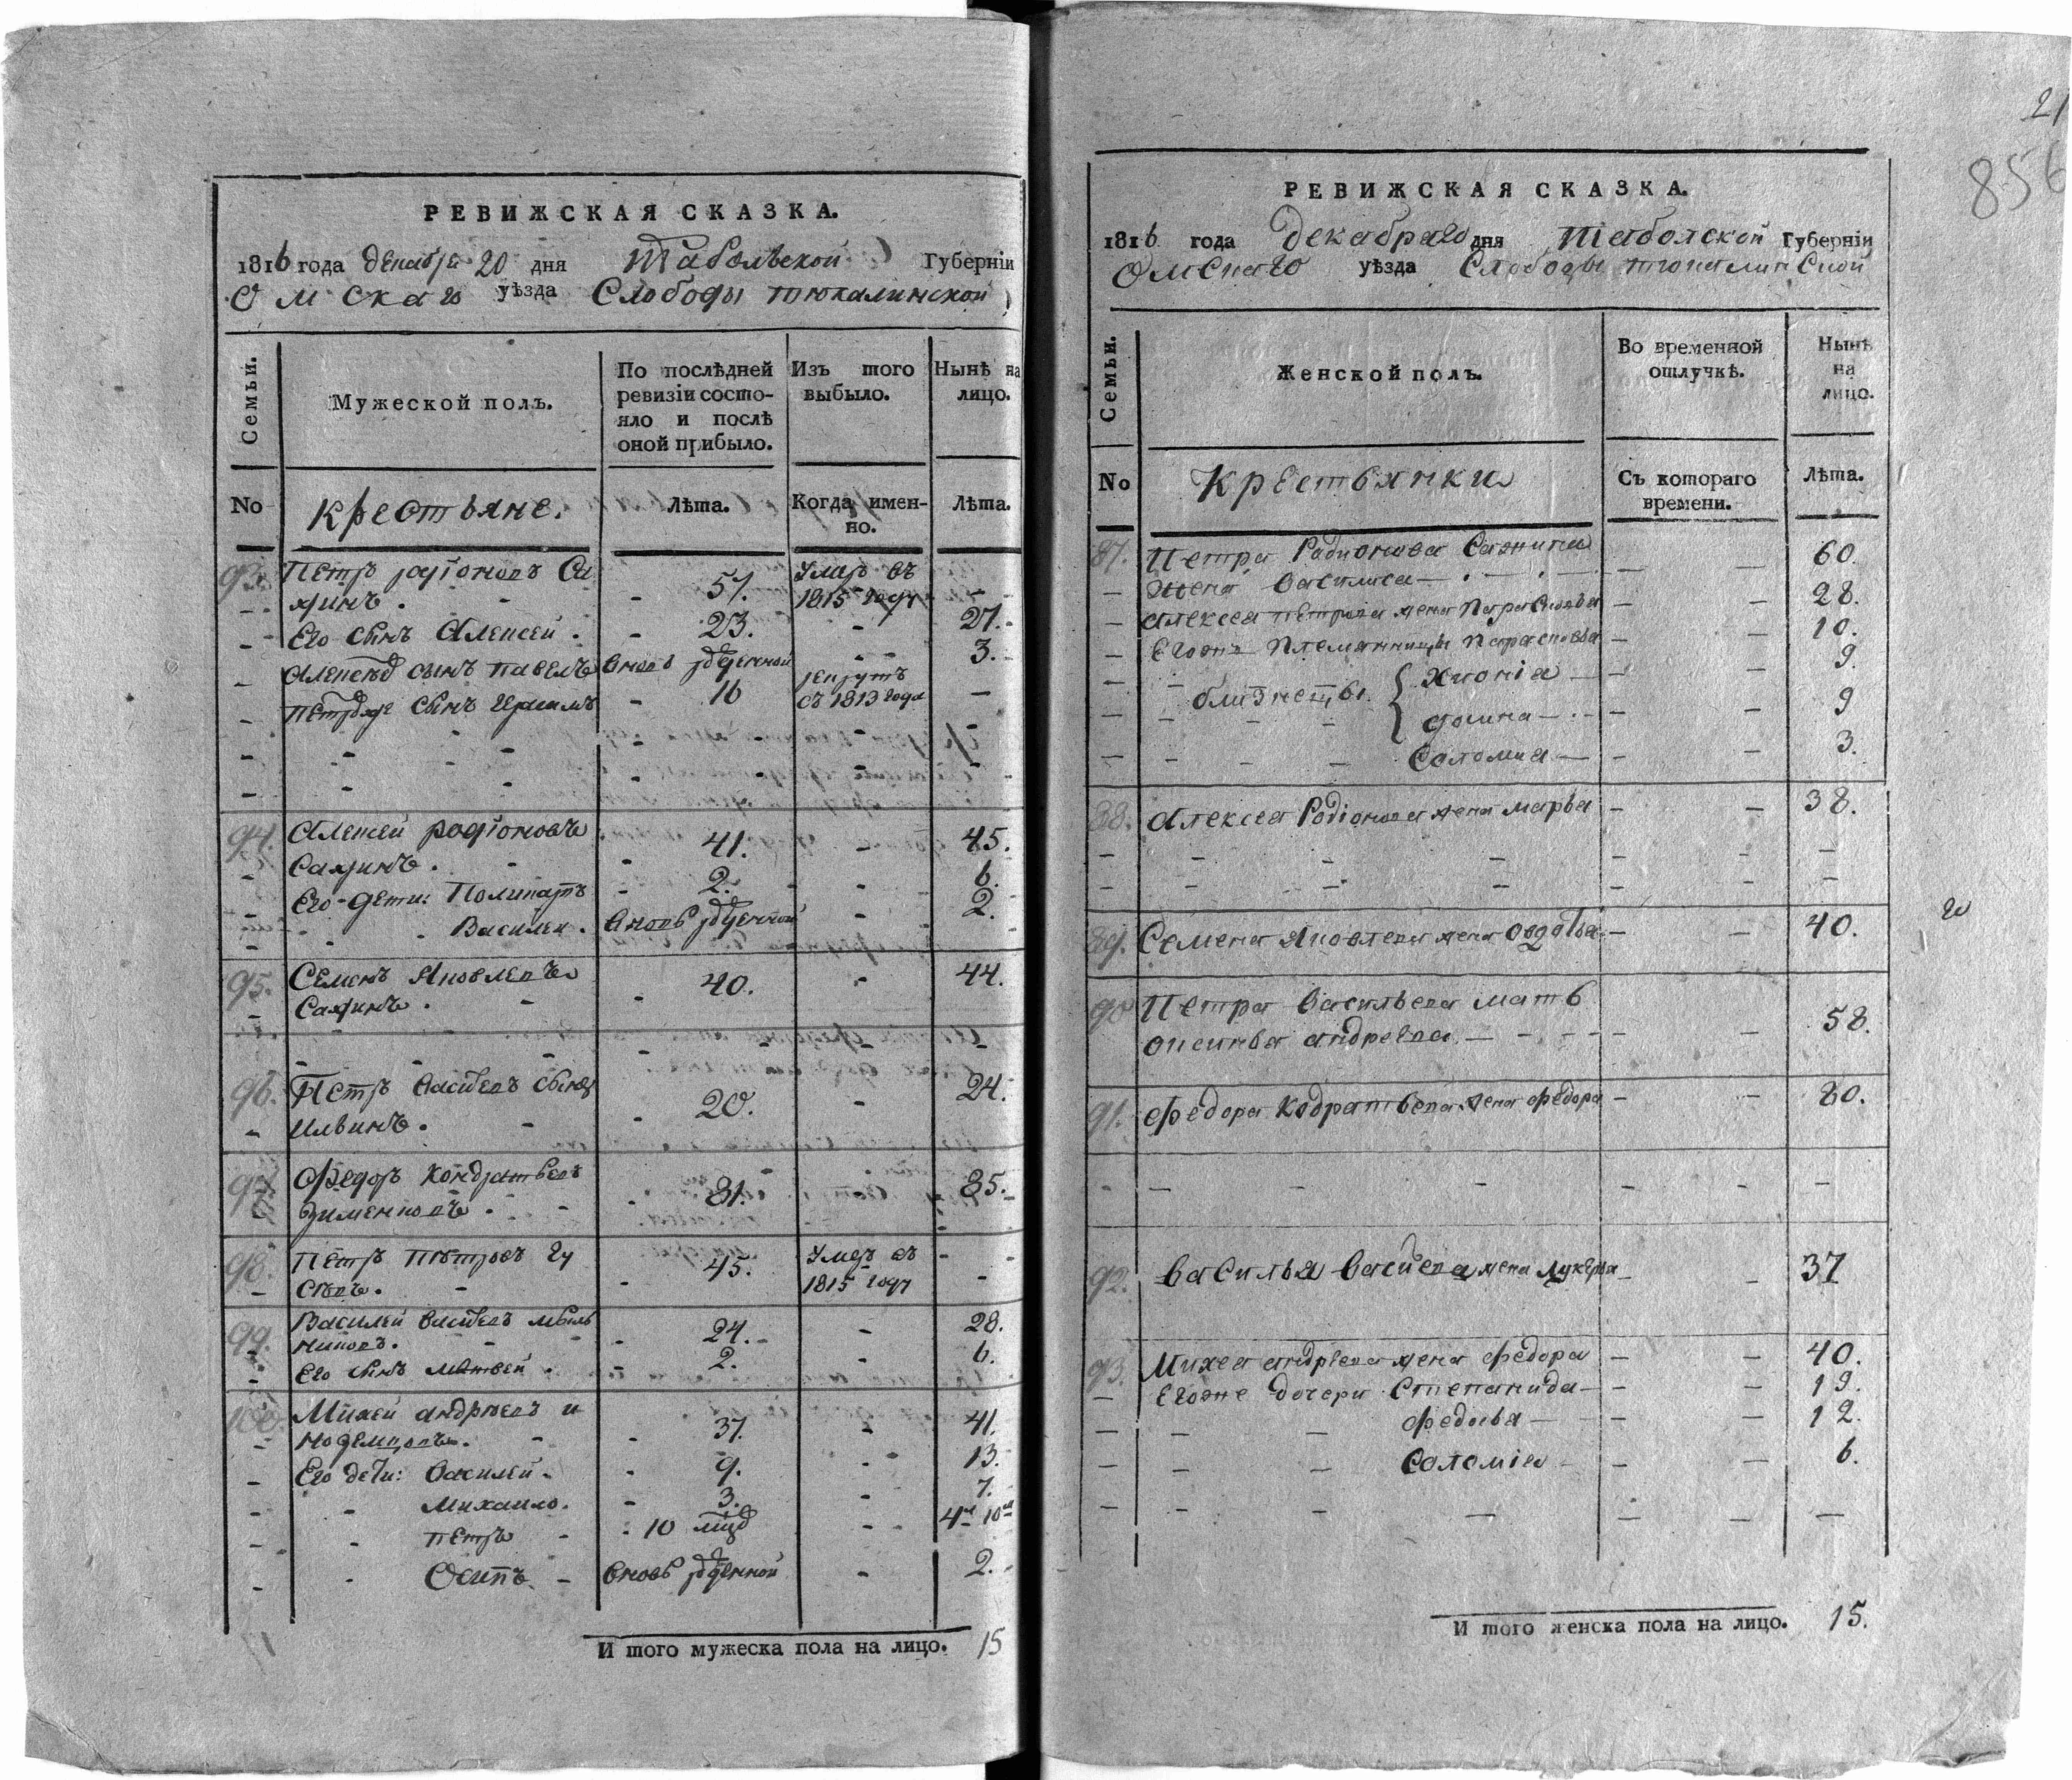 РЕВИЖСКАЯ СКАЗКА.
1816 года декабря 20 дня Табольской Губернїи
Омскаго уѣзда Слободы тюкалинской
Семьи.
Мужеской полъ.
По послѣдней ревизїи состо-
яло и послѣ
оной прибыло.
Изъ того
выбыло.
Нынѣ на
лицо.
No
крестьяне.
Лѣта.
Когда имен-
но.
Лѣта.
93. Петръ родїоновъ Са 57. Умер въ
жинъ. 1815 году
Его сынъ Алексей. 23. 27.
Алексеѣ сынъ павелъ вновь рожденной 3.
16 рекрутъ
съ 1813 года
94. Алексей родїоновъ 41. 45.
Сажинъ.
Его дети: Поликарпъ 2. 6.
Василеи. вновь рожденной 2.
95. Семенъ Яковлевъ 40. 44.
Сажинъ.
96. Петръ Васильевъ сынъ 20. 24.
Ильинъ.
97. Федоръ кондратьевъ 81. 85.
Зименковъ.
98. Петръ Петровъ Гу 45. Умер въ
севъ. 1815 году
99. Василей васильевъ мель 24. 28.
никовъ.
Его сынъ матвей. 2. 6.
100. Михей андреевъ и 37. 41.
ноземцовъ.
Его дети: Василей. 9. 13.
Михаило. 3. 7.
петръ 10 мцъ 4 10
Осипъ вновь рожденной 2.
И того мужеска пола на лицо. 15
21
856
РЕВИЖСКАЯ СКАЗКА.
1816 года декабря 20 дня Табольской Губернїи
Омскаго уѣзда Слободы тюкалинской
Семьи.
Женской полъ.
Во временной
отлучкѣ.
Нынѣ
на
лицо.
No
Крестьянки
Съ котораго
времени.
Лѣта.
87. Петра Радионова Сажина
жена василиса 60.
алексея петрова жена Парасковья 28.
Егоже Племянницы Парасковья 10.
близнецы { Хионїя 9.
домна 9
Соломия 3.
88. алексея Родїонова жена марья 38.
89. Семена Яковлева жена овдотья 40.
90 Петра васильева мать
оксинья андреева 58.
91. федора кодратьева жена федора 80.
92. василья васильева жена лукерья 37
93. Михея андреева жена федора 40.
Егоже дочери Степанида 19.
федосья 12.
Соломїя 6.
И того женска пола на лицо. 15.